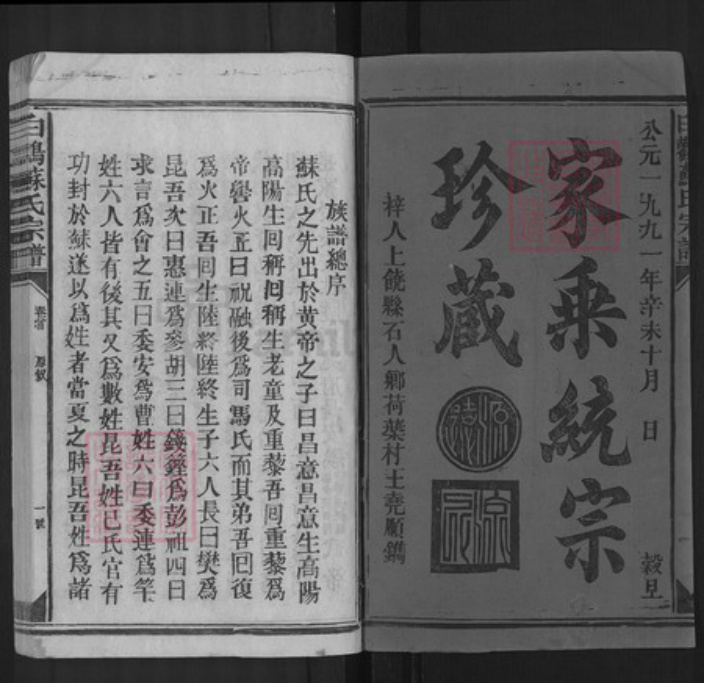 公元一九九一年辛未十月　日　穀旦
家乘統宗
珍藏
梓人上饒縣石人鄉荷葉村王堯順鐫
族譜總序
蘇氏之先出於黃帝之子曰昌意昌意生高陽
高陽生囘稱囘稱生老童及重藜吾囘重藜爲
帝嚳火正曰祝融後爲司馬氏而其弟吾囘復
爲火正吾囘生陸終陸終生子六人長曰樊爲
昆吾次曰惠連爲參胡三曰籛鏗爲彭祖四曰
求言爲會之五曰委安爲曹姓六曰委連爲羋
姓六人皆有後其又爲數姓昆吾姓己氏官有
功封於蘇遂以爲姓者當夏之時昆吾姓爲諸
蘇氏宗譜
卷首　原敘
一號